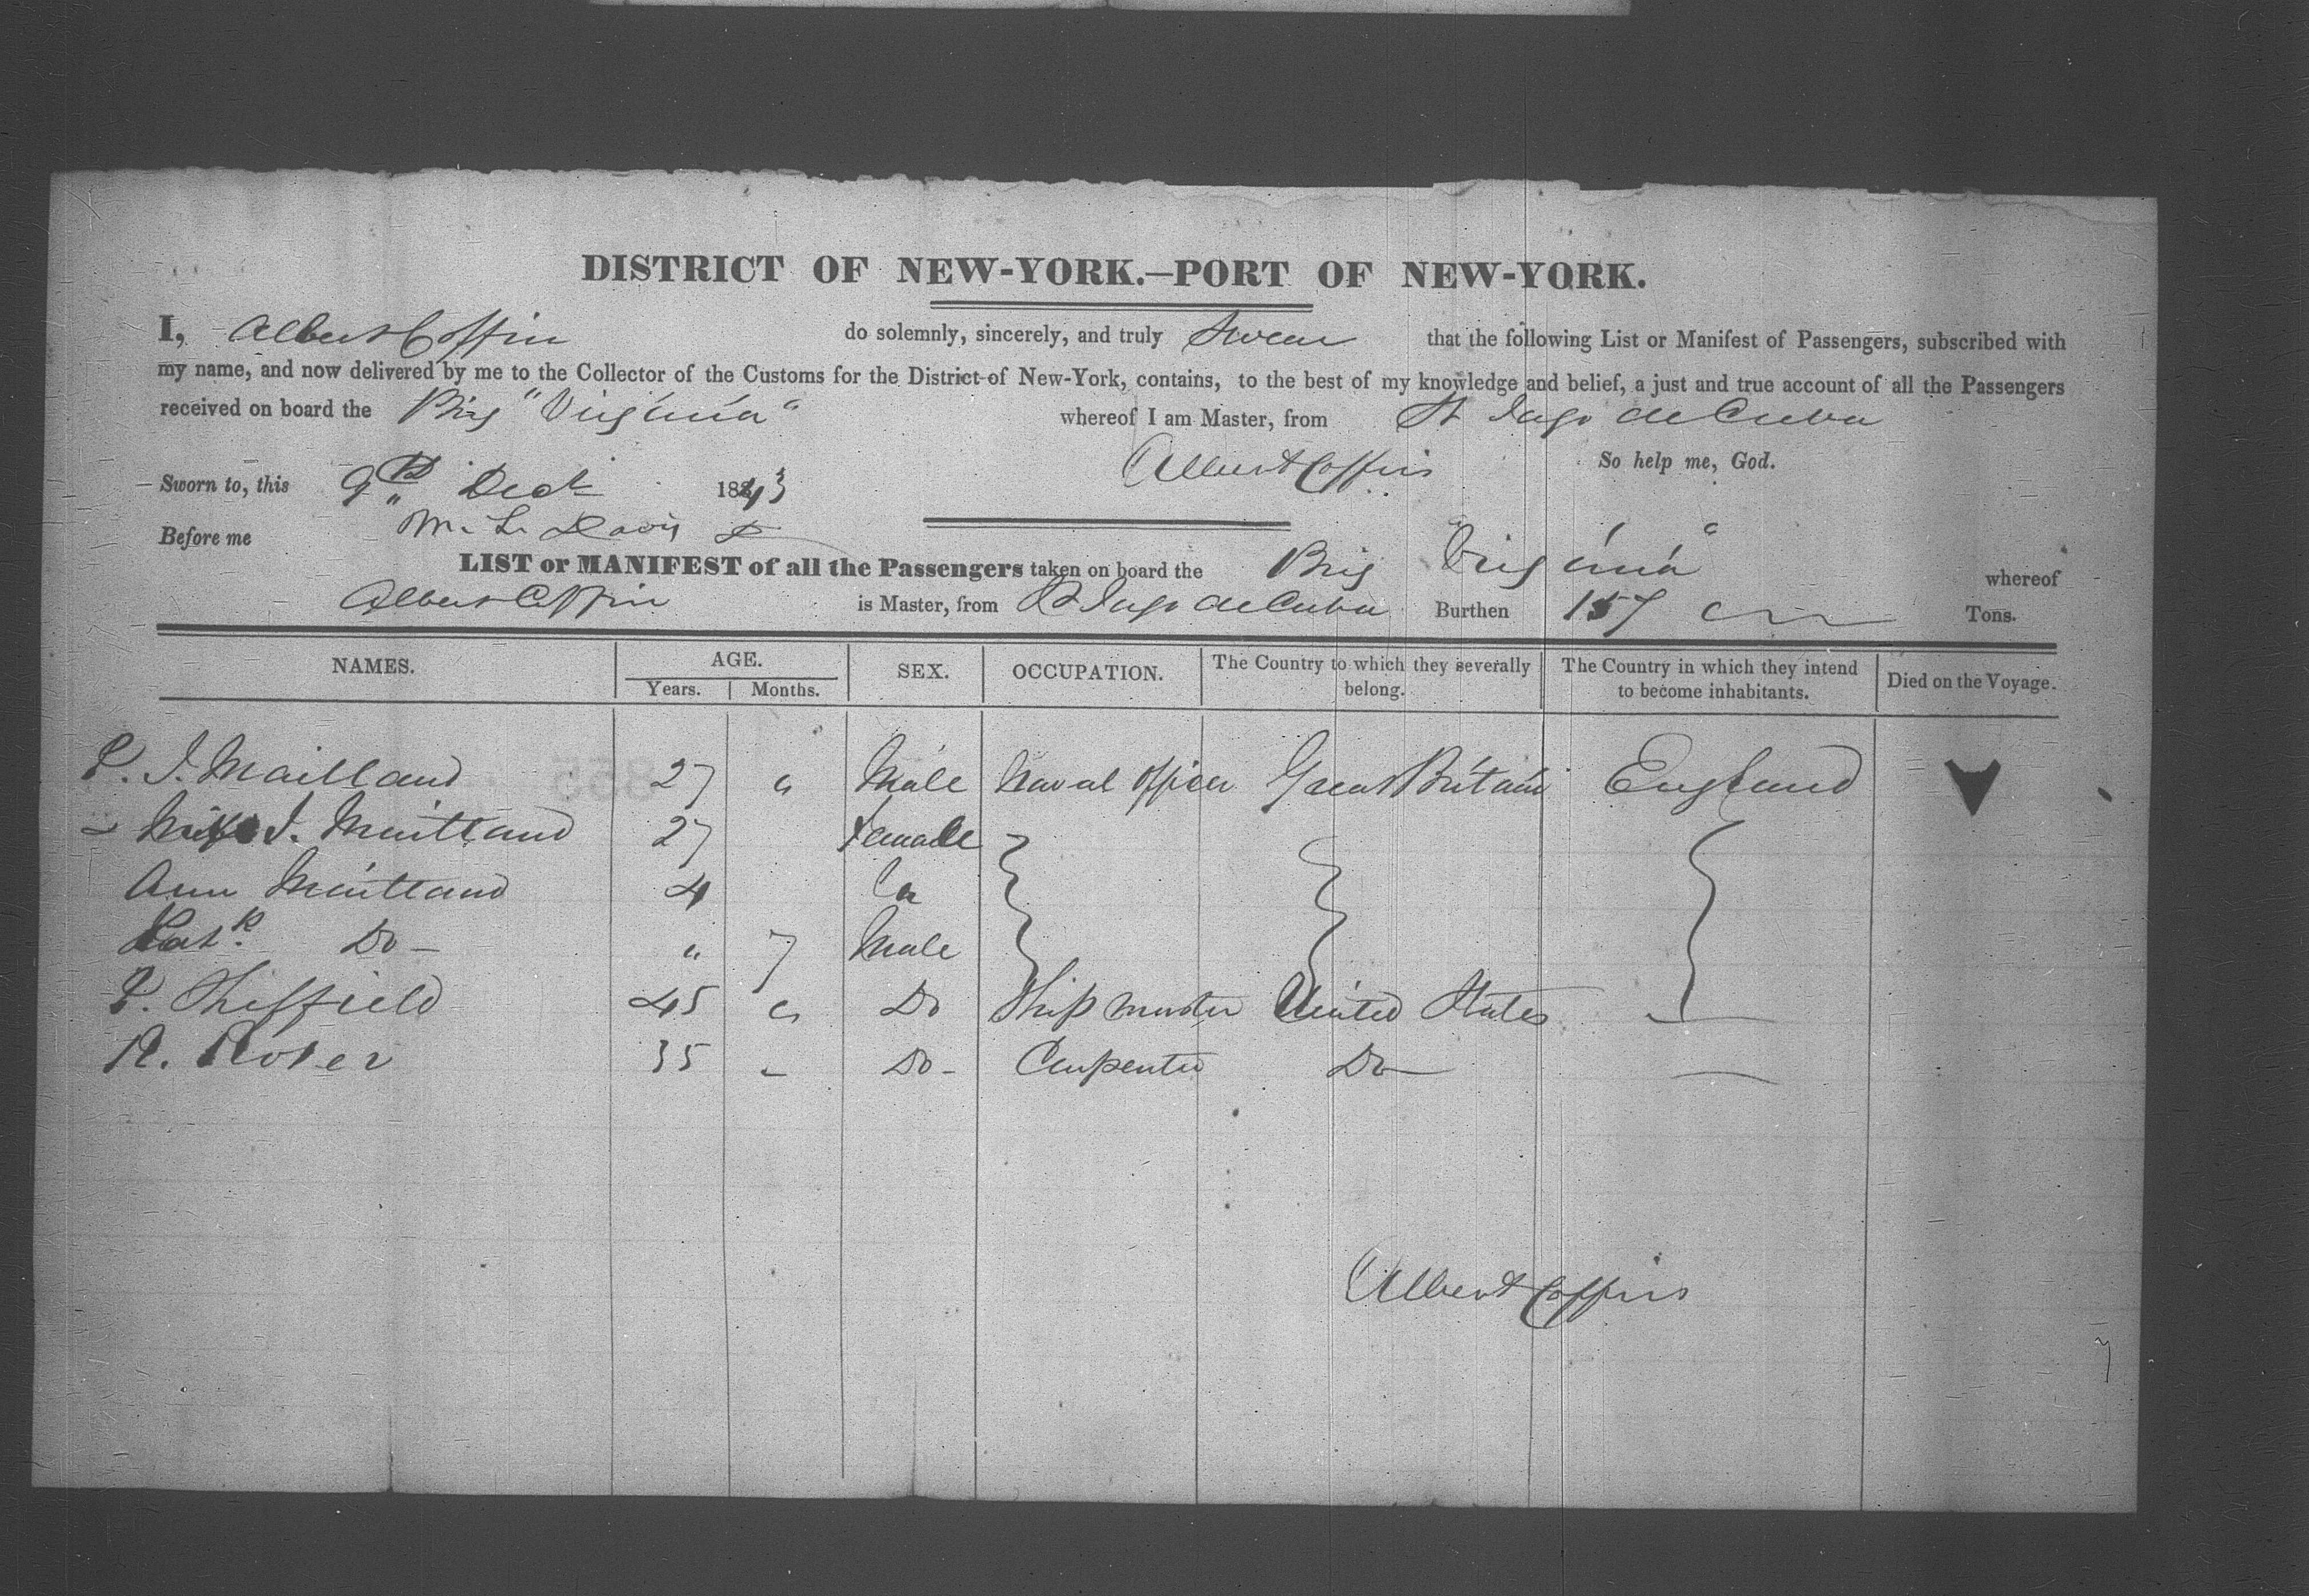 DISTRICT OF NEW-YORK.—PORT OF NEW-YORK.
I, Albert Coffin do solemnly, sincerely, and truly Swear that the following List or Manifest of Passengers, subscribed with
my name, and now delivered by me to the Collector of the Customs for the District of New-York, contains, to the best of my knowledge and belief, a just and true account of all the Passengers
received on board the Brig "Virginia" whereof I am Master, from St Jago de Cuba
Albert Coffin So help me, God.
Sworn to, this 9th Decr 1843
Before me M. L. Davis
LIST or MANIFEST of all the Passengers taken on board the Brig "Virginia" whereof
Albert Coffin is Master, from St Jago de Cuba Burthen 157 Tons.
NAMES. AGE. SEX. OCCUPATION. The Country to which they severally belong. The Country in which they intend to become inhabitants. Died on the Voyage.
Years. Months.
P. J. Maitland 27 " Male Naval Officer Great Britain England
J. Maitland 27 Female
Ann Maitland 4
Do — " 7 Male
P. Sheffield 45 " Do Ship master United States —
R. 35 - Do - Carpenter Do — —
Albert Coffin